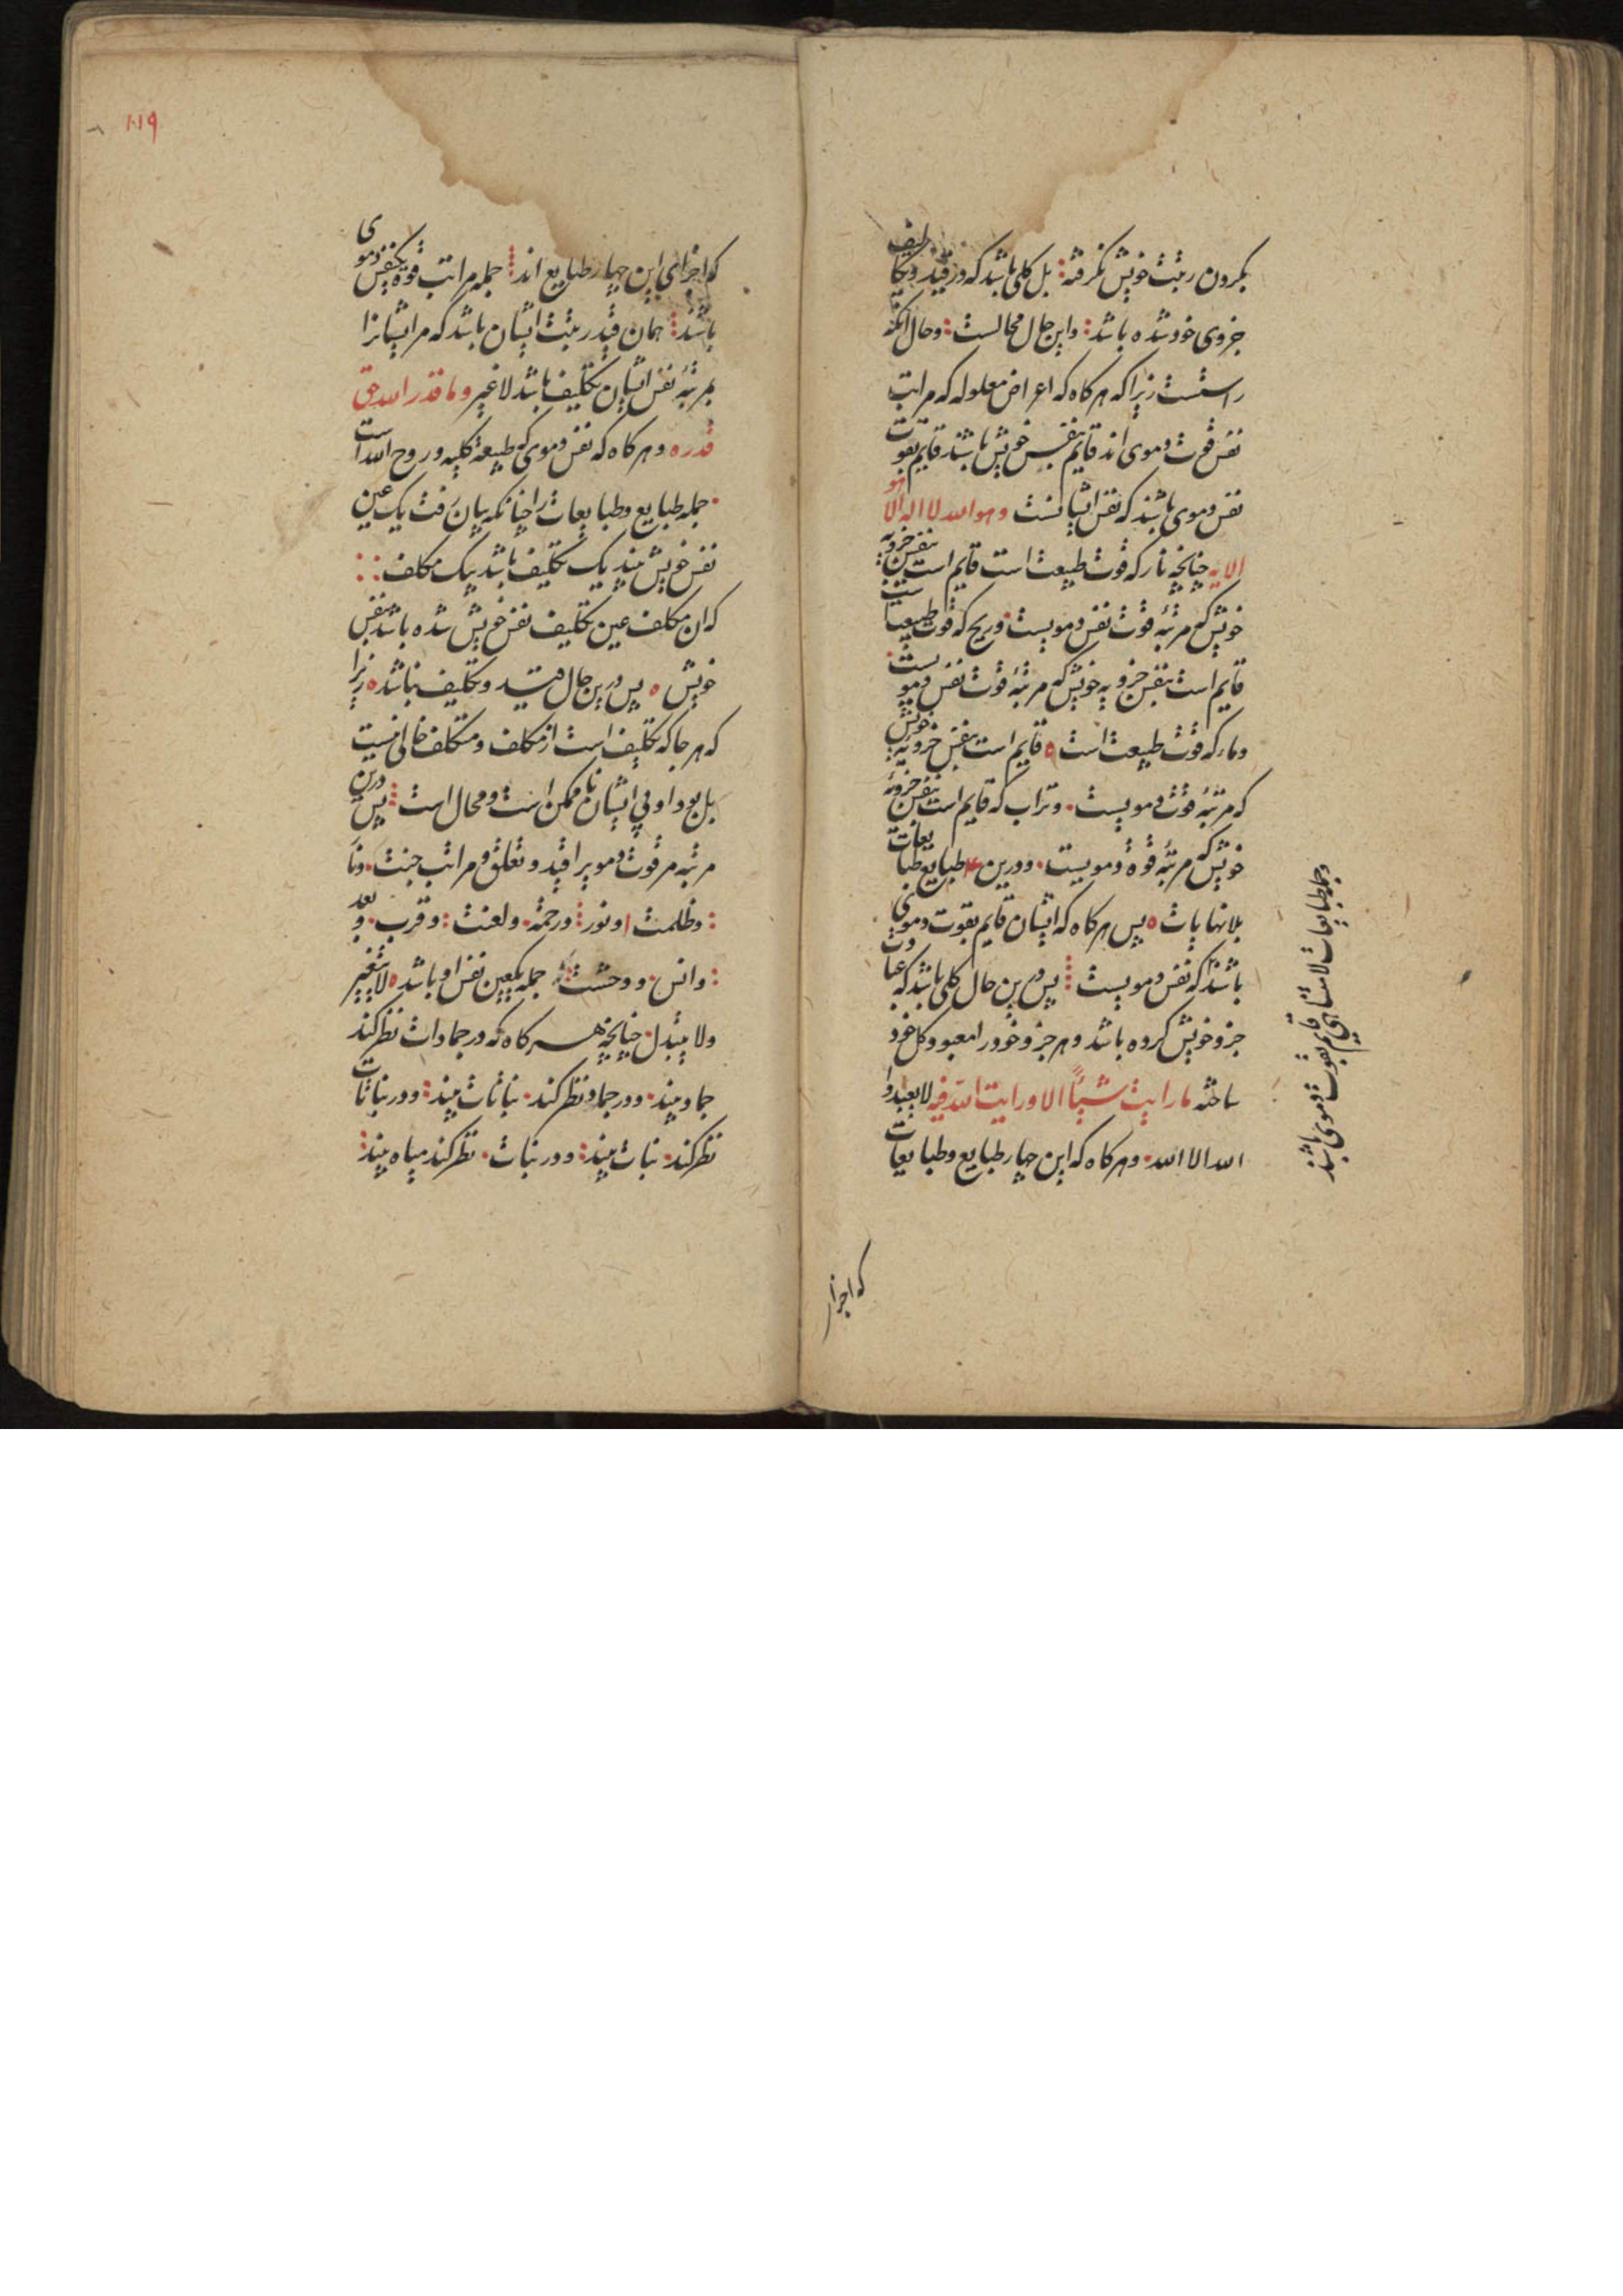 بگردن ربقت خویش نگرفته بل کلی باشد که در قید و تکالیف
جزوی خود شده باشد واین حال محالست وحال آنکه
راستست زیرا که هرگاه که اعراض معلوله که مراتب
نفس قوت دموی اند قایم بنفس خویش باشند قایم بقوت
نفس دموی باشند که نفس ایشانست وهو الله لا اله الا هو
الایه چنانچه نار که قوت طبیعت است قایم است بنفس جزویه
خویش که مرتبه قوت نفس دمویست وریح که قوت طبیعیات
قایم است بنفس جزویه خویش که مرتبهٔ قوت نفس دمویست
وماء که قوت طبیعت است قایم است بنفس جزویه خویش
که مرتبهٔ قوت دمویست وتراب که قایم است بنفس جزویهٔ
خویش که مرتبه قوة دمویست ودرین ۴ طبایع طبایعات
بلانهایات پس هرگاه که ایشان قایم بقوت دموی
باشند که نفس دمویست پس درین حال کلی باشد که عبادت
جزو خویش کرده باشد وهر جزو خود را معبود کل خود
ساخته ما رایت شیئاً الا ورایت الله فیه لا یعبدوا
الله الا الله وهرگاه که این چهار طبایع وطبایعات
وجمله طبایعات لا متناهی قایم بقوت دموی باشند
که اجزای
۱۱۹
که اجزای این چهار طبایع اند جمله مراتب قوة یکنفس دموی
باشند همان قید ربقت ایشان باشد که مر ایشانرا
بمرتبهٔ نفس ایشان تکلیف باشد لاغیر وما قدر الله حق
قدره وهرگاه که نفس دموی که طبیعة کلیه وروح الله است
جمله طبایع وطبایعات را چنانکه بیان رفت یک عین
نفس خویش بیند یک تکلیف باشد بیک مکلف
که ان مکلف عین تکلیف نفس خویش شده باشد بنفس
خویش پس درین حال قید وتکلیف نباشد زیرا
که هر جا که تکلیف است از مکلف ومتکلف خالی نیست
بل بود او بی ایشان نا ممکن است ومحال است پس درین
مرتبه مر قوت دمویرا قید وتعلق ومراتب جنت ونار
وظلمت ونور ورحمة ولعنت وقرب وبعد
وانس ووحشت جمله یکعین نفس او باشد لا یتغیر
ولا یتبدل چنانچه هرگاه که در جمادات نظر کند
جماد بیند ودر جماد نظر کند نباتات بیند ودر نباتات
نظر کند نبات بیند ودر نبات نظر کند میاه بیند